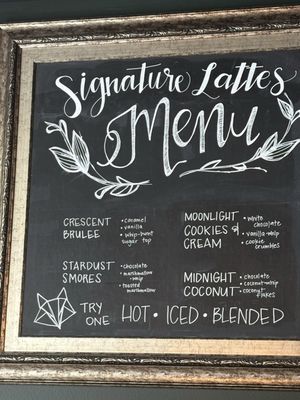 Signature Lattes
Menu
CRESCENT
BRULEE
• caramel
• vanilla
• whip-burnt
sugar top
MOONLIGHT
COOKIES &
CREAM
• white
chocolate
• vanilla-whip
• cookie
crumbles
STARDUST
SMORES
• chocolate
• marshmallow
-whip
• toasted
marshmallow
MIDNIGHT
COCONUT
• chocolate
• coconut-whip
• coconut
flakes
TRY
ONE
HOT • ICED • BLENDED